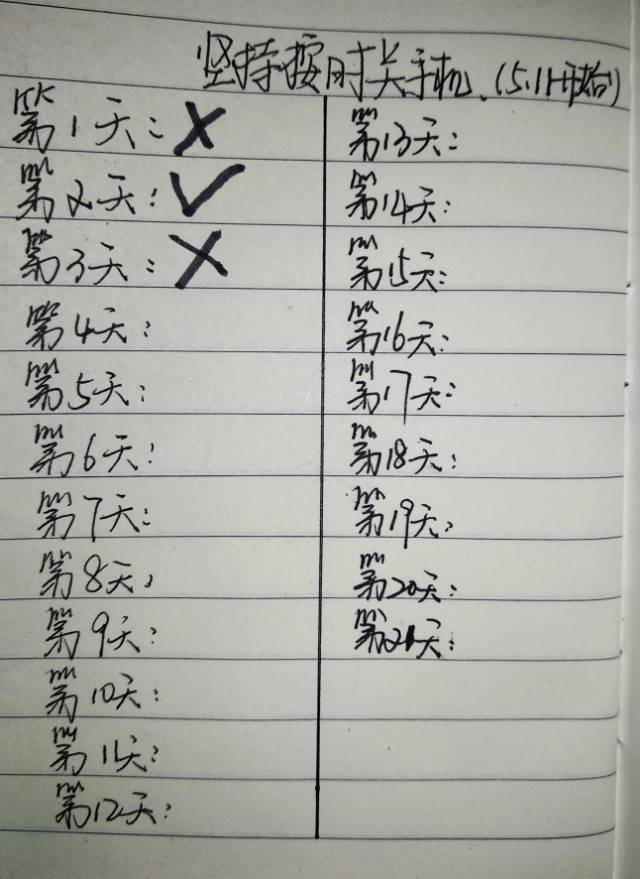 坚持按时关手机.(5.11开始)
第1天: ×
第2天: ✓
第3天: ×
第4天:
第5天:
第6天:
第7天:
第8天:
第9天:
第10天:
第11天:
第12天:
第13天:
第14天:
第15天:
第16天:
第17天:
第18天:
第19天:
第20天:
第21天: